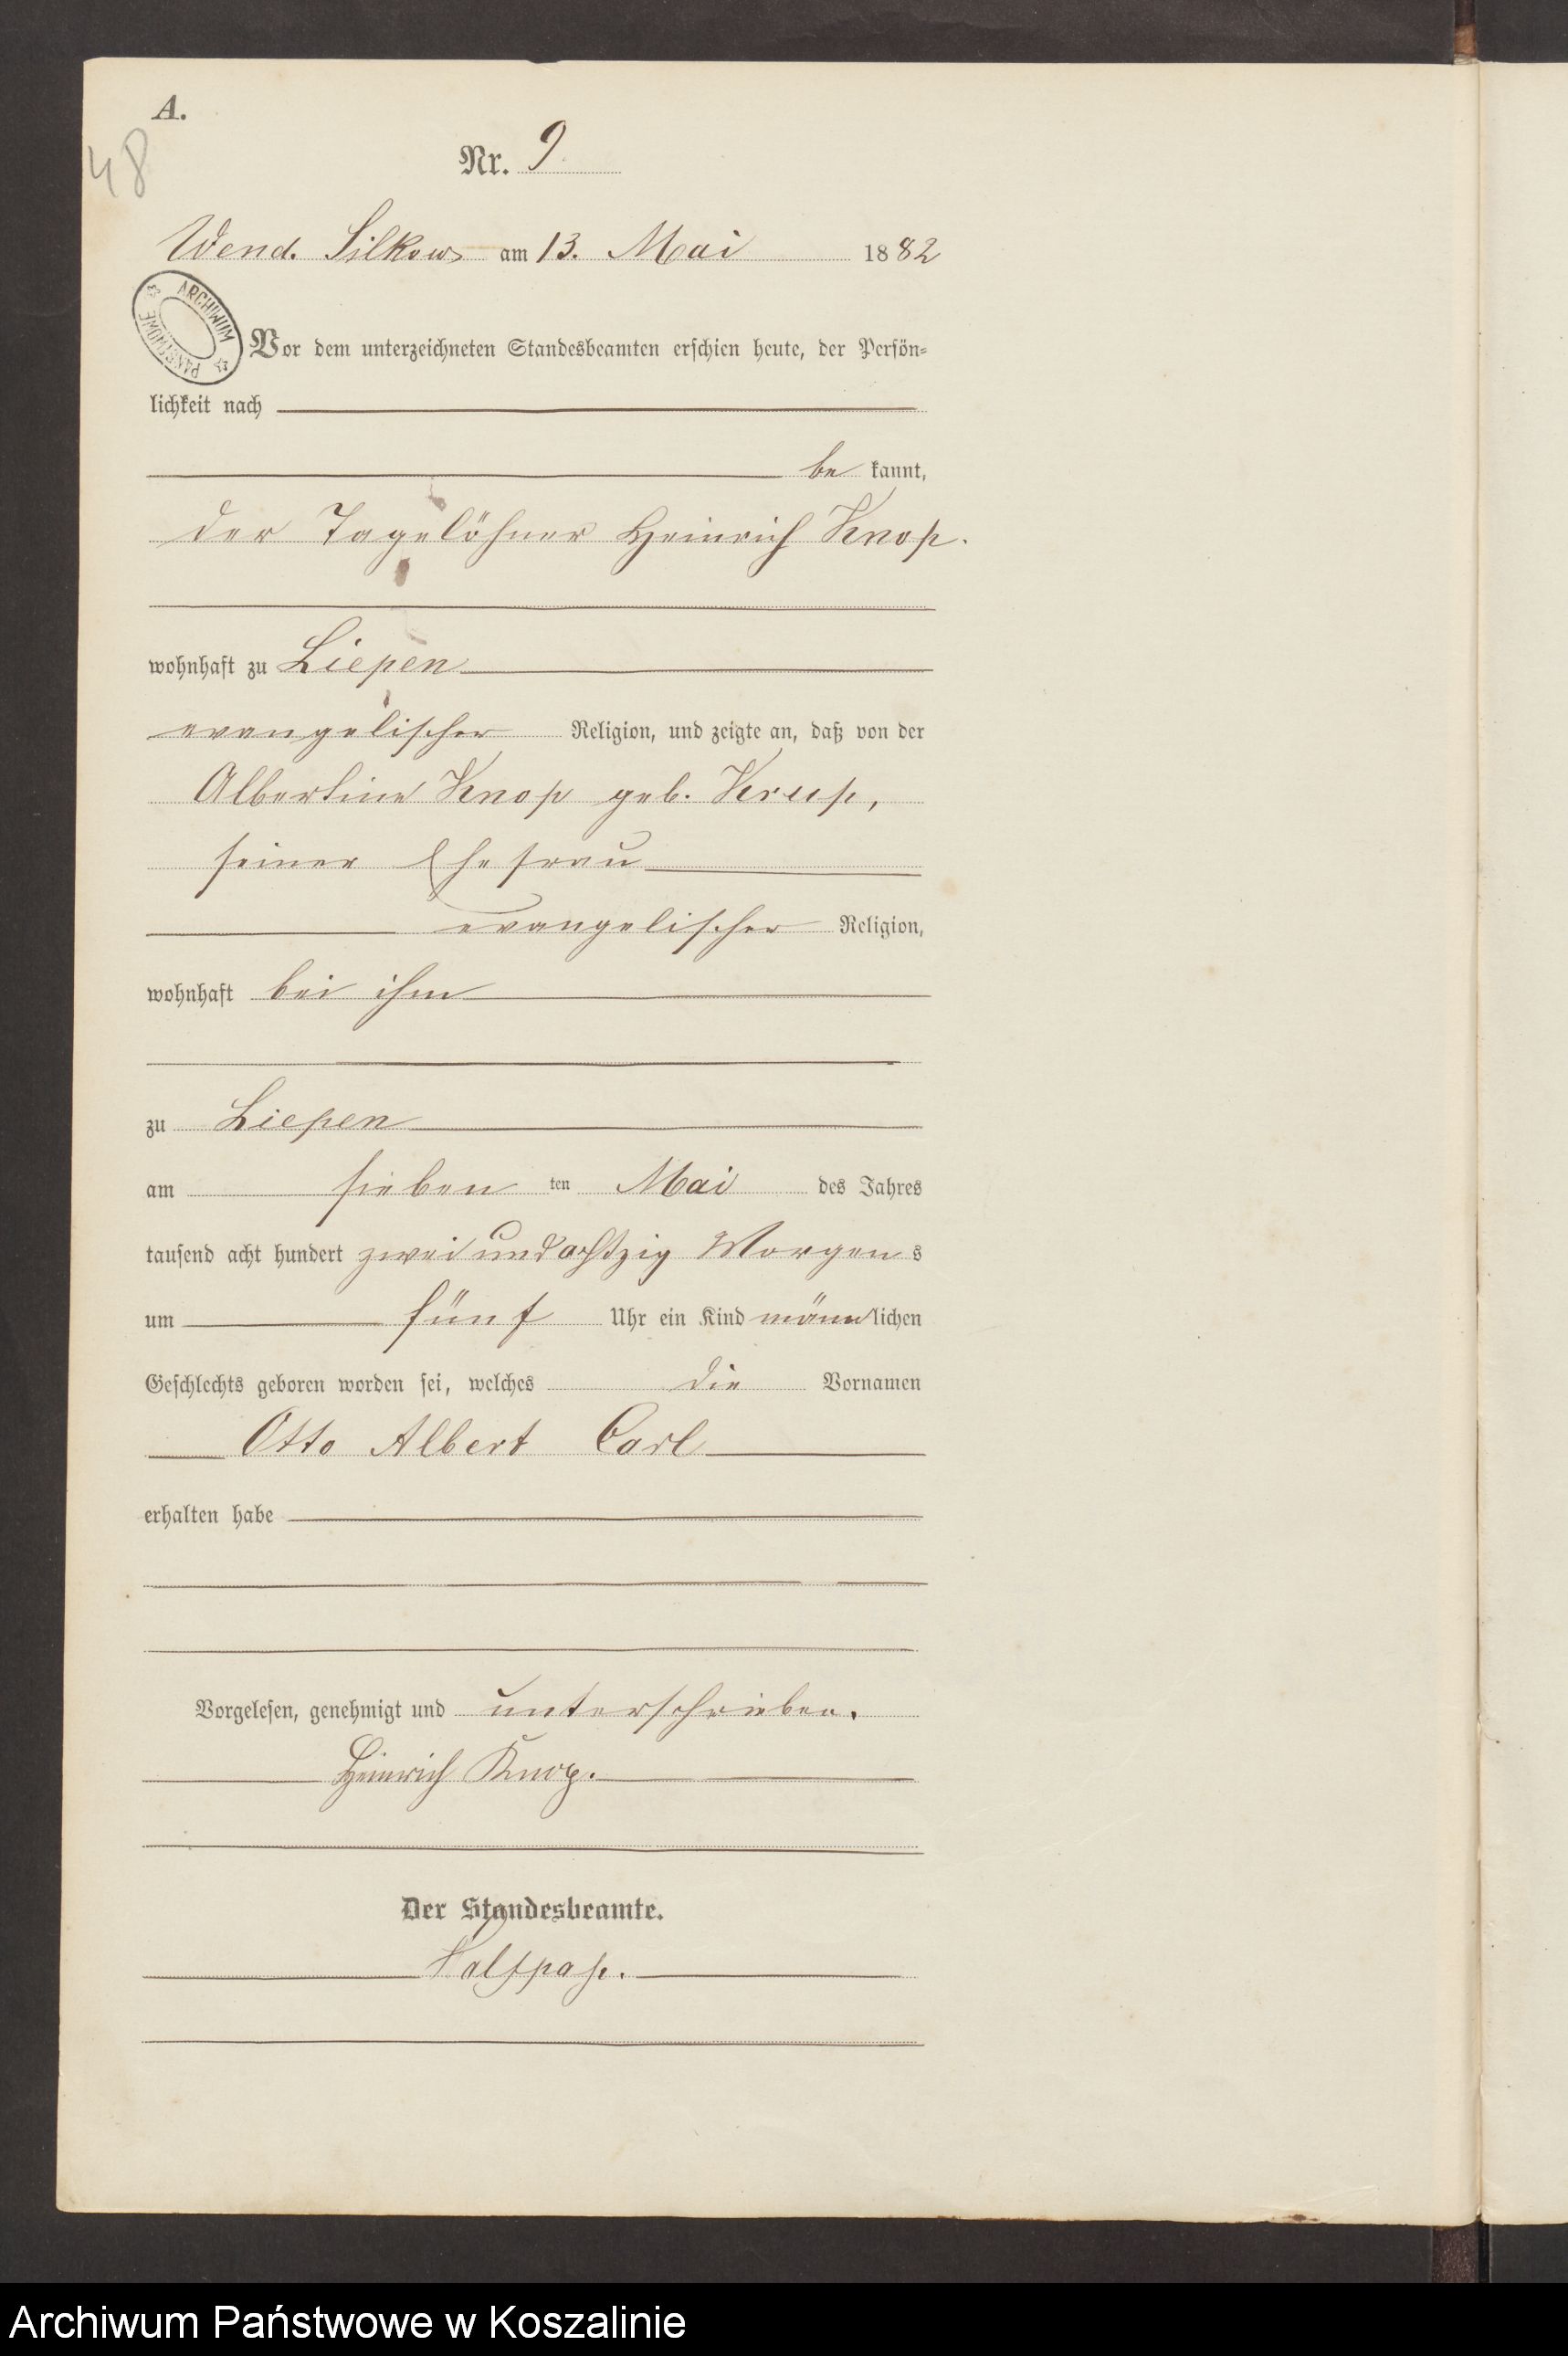 A.
48
Nr. 9.
Wend. Silkow am 13. Mai 1882
ARCHIWUM PAŃSTWOWE
Vor dem unterzeichneten Standesbeamten erschien heute, der Persön-
lichkeit nach
be kannt,
der Tagelöhner Heinrich Knop.
wohnhaft zu Liepen
evangelischer Religion, und zeigte an, daß von der
Albertine Knop geb. Krup,
seiner Ehefrau
evangelischer Religion,
wohnhaft bei ihm
zu Liepen
am sieben ten Mai des Jahres
tausend acht hundert zwei und achtzig Morgens
um fünf Uhr ein Kind männlichen
Geschlechts geboren worden sei, welches die Vornamen
Otto Albert Carl
erhalten habe
Vorgelesen, genehmigt und unterschrieben.
Heinrich Knop.
Der Standesbeamte.
Archiwum Państwowe w Koszalinie